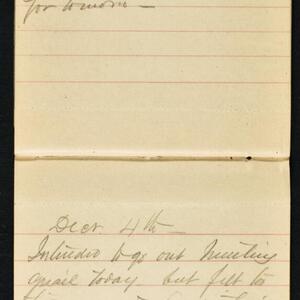 for tomorrow —
Decr. 4th —
Intended to go out hunting
quail today but felt too